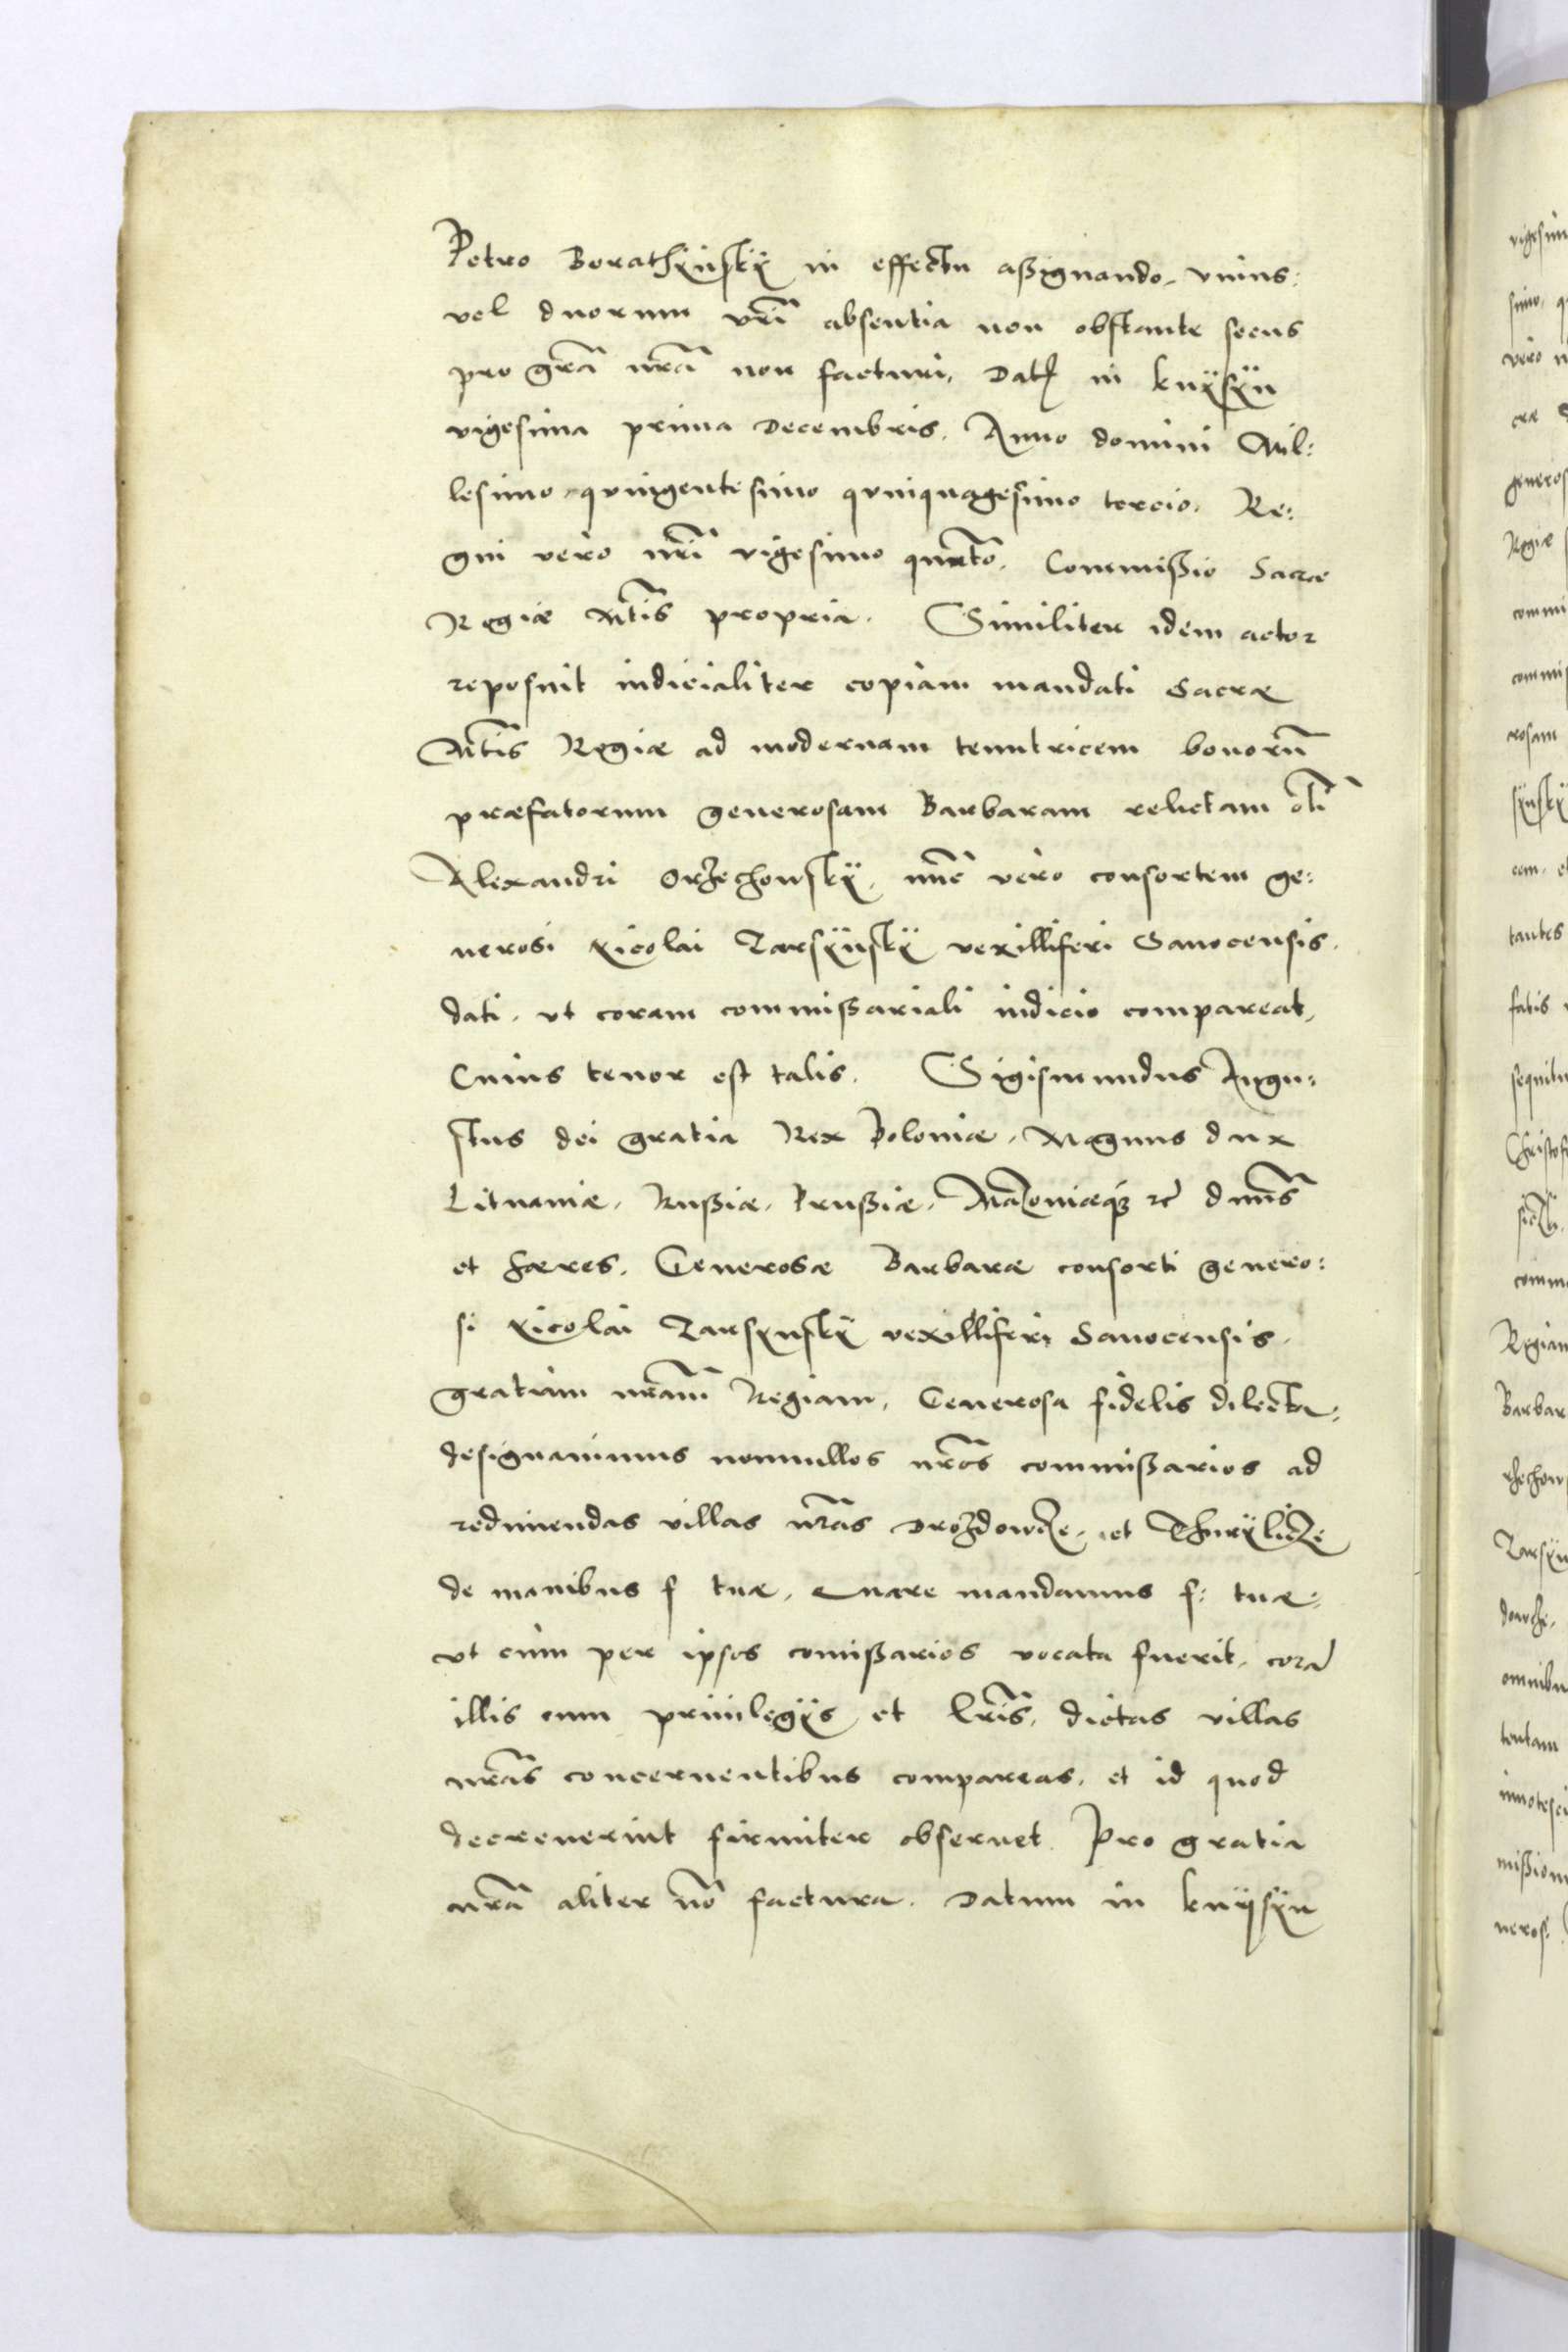 Petro Borathÿnskÿ in effectu aßignando, vnius:
vel duorum vrĩ absentia non obstante secus
pro grã nrã non facturi, Datꝭ in knÿsÿn
vigesima prima Decembris. Anno domini Mil:
lesimo, quingentesimo quinquagesimo tercio, Re:
gni vero nrĩ vigesimo quarto. Commißio Sacræ
Regiæ Mtĩs propria. Similiter idem actor
reposuit iudicialiter copiam mandati Sacræ
Mtĩs Regiæ ad modernam tenutricem bonorũ
præfatorum generosam Barbaram relictam olĩ
Alexandri Orzechowskÿ, nũc vero consortem ge:
nerosi Nicolai Tarsÿnskÿ vexilliferi Sanocensis.
dati, vt coram commißariali iudicio compareat,
Cuius tenor est talis. Sigismundus Augu:
stus dei gratia Rex Poloniæ, Magnus dux
Lituaniæ, Rußiæ, Prußiæ, Mazouiæqꝫ ꝛc̃ dnũs
et hæres. Generosæ Barbaræ consorti genero:
si Nicolai Tarsynskÿ vexilliferi Sanocensis,
gratiam nrãm Regiam, Generosa fidelis dilecta:
designauimus nonnullos nrõs commißarios ad
redimendas villas nrãs Drozdowcze, et Thurÿlicze
de manibus f tuæ, Quare mandamus f: tuæ:
vt cùm per ipsos comißarios vocata fuerit, corã
illis cum priuilegÿs et lrĩs, dictas villas
nrãs concernentibus compareas, et id quod
decreuerint firmiter obseruet. Pro gratia
nrã aliter nõ factura. Datum in knÿsÿn